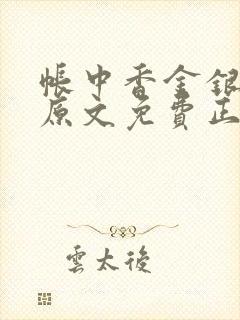 帳中香金銀
原文免費正
雲太後